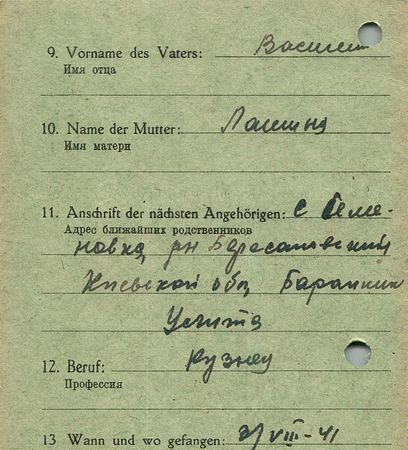 9. Vorname des Vaters: Василий
Имя отца
10. Name der Mutter:
Имя матери
11. Anschrift der nächsten Angehörigen: с Семе-
Адрес ближайших родственников
новка рн
Киевской обл
12. Beruf: Кузнец
Профессия
13 Wann und wo gefangen: VIII-41